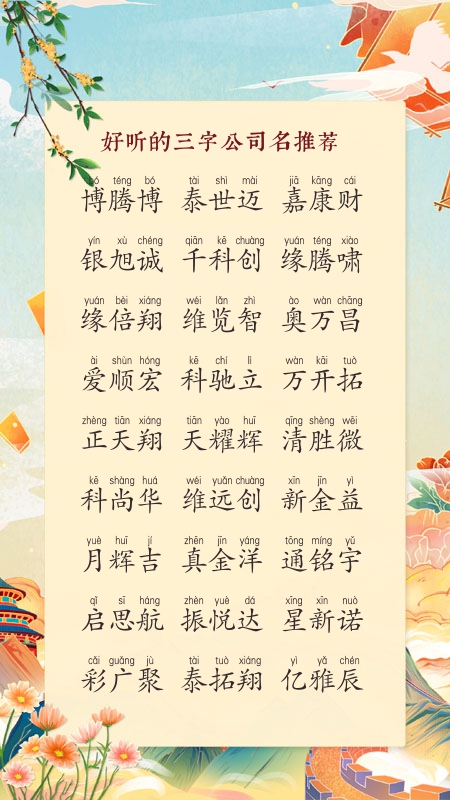 好听的三字公司名推荐
bó téng bó tài shì mài jiā kāng cái
博腾博 泰世迈 嘉康财
yín xù chéng qiān kē chuàng yuán téng xiào
银旭诚 千科创 缘腾啸
yuán bèi xiáng wéi lǎn zhì ào wàn chāng
缘倍翔 维览智 奥万昌
ài shùn hóng kē chí lì wàn kāi tuò
爱顺宏 科驰立 万开拓
zhèng tiān xiáng tiān yào huī qīng shèng wēi
正天翔 天耀辉 清胜微
kē shàng huá wéi yuǎn chuàng xīn jīn yì
科尚华 维远创 新金益
yuè huī jí zhēn jīn yáng tōng míng yǔ
月辉吉 真金洋 通铭宇
qǐ sī háng zhèn yuè dá xīng xīn nuò
启思航 振悦达 星新诺
cǎi guǎng jù tài tuò xiáng yì yǎ chén
彩广聚 泰拓翔 亿雅辰